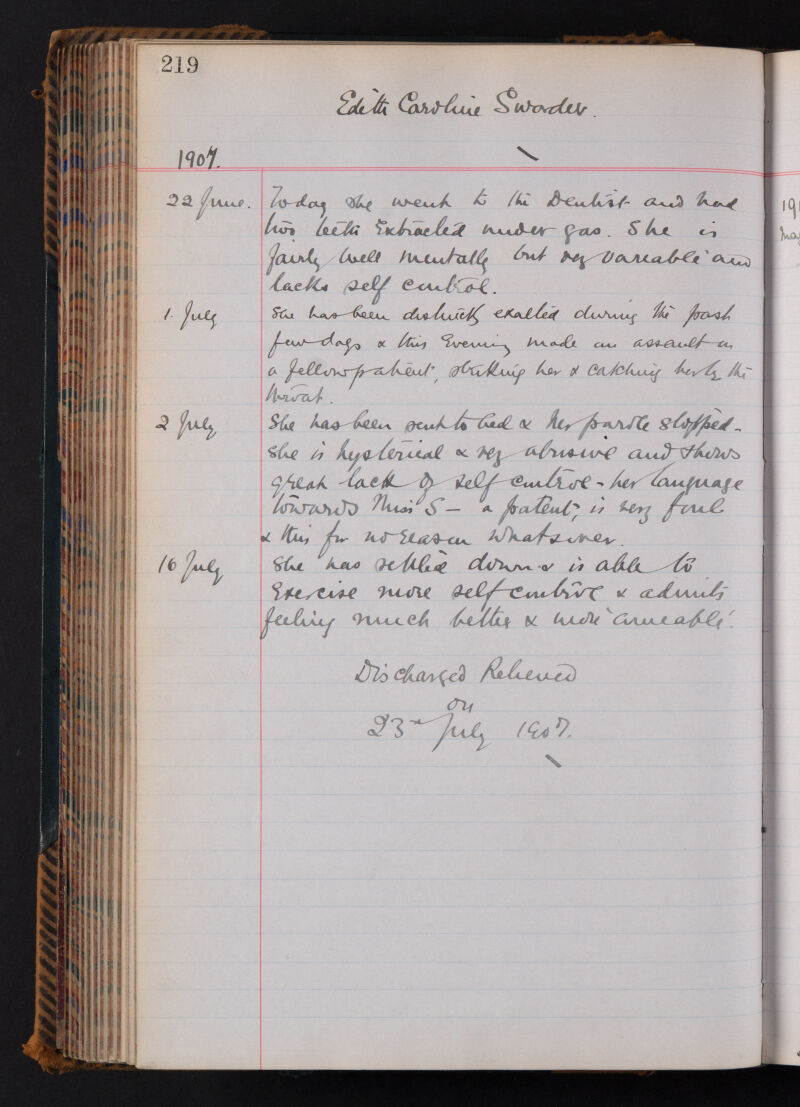 219
Edith Caroline Swarder.
1907.
22 June. Today she went to the Dentist and had
two teeth Extracted under gas. She is
fairly well mentally but very variable and
lacks self control.
1. July She has been distinctly exalted during the past
few days & this Evening made an assault on
a fellow patient, striking her & catching her by the
throat.
2 July She has been sent to bed & her parole stopped -
She is hysterical & very abusive and shows
great lack of self control - her language
towards Miss S - a patient, is very foul
& this for no reason whatsoever.
16 July She has settled down & is able to
Exercise more self control & admits
feeling much better & more amenable.
Discharged Relieved
on
23rd July 1907.
191
May